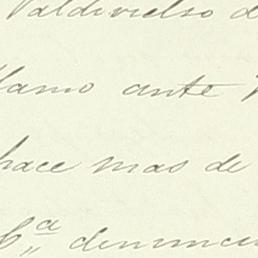 Valdivielso d
llamo ante V
hace mas de
S.ª denuncia